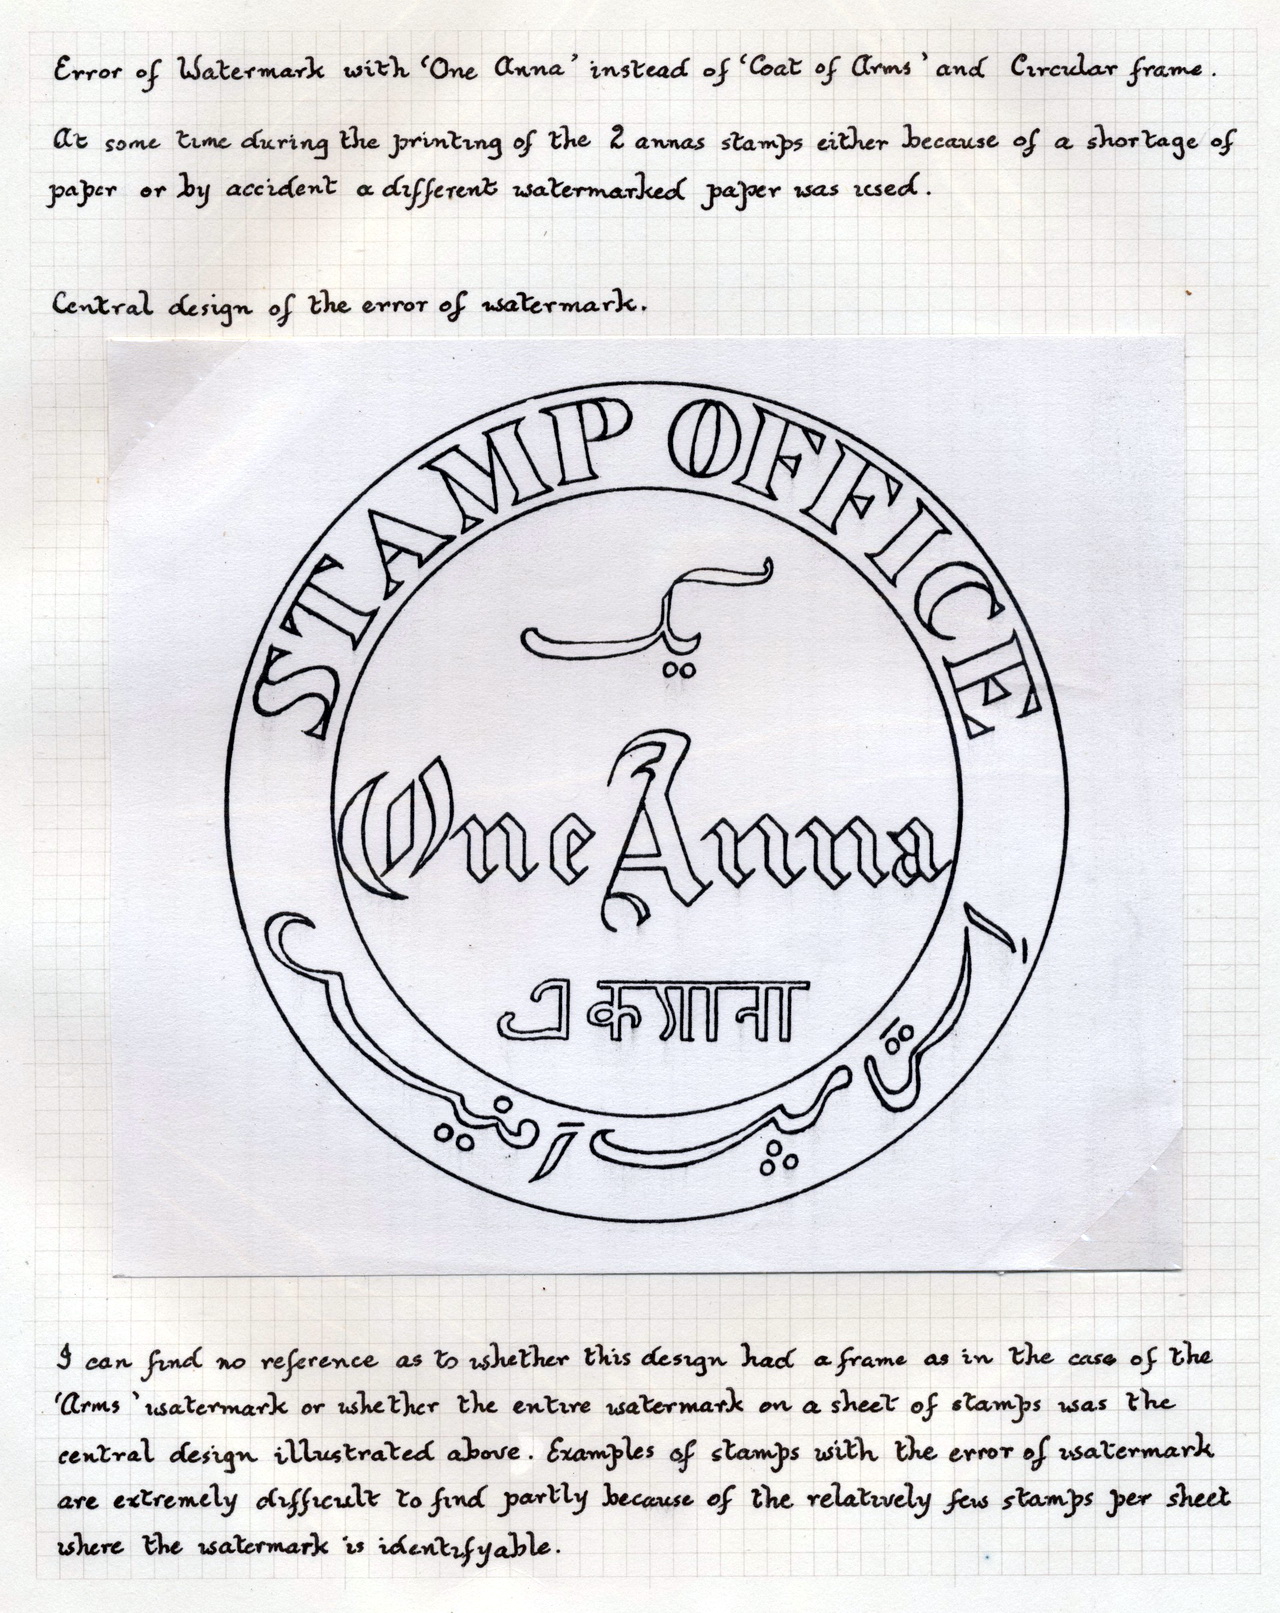 Error of Watermark with ‘One Anna’ instead of ‘Coat of Arms’ and Circular frame.
At some time during the printing of the 2 annas stamps either because of a shortage of
paper or by accident a different watermarked paper was used.
Central design of the error of watermark.
STAMP OFFICE
یک
One Anna
एकआना
اسٹامپ آفیس
I can find no reference as to whether this design had a frame as in the case of the
‘Arms’ watermark or whether the entire watermark on a sheet of stamps was the
central design illustrated above. Examples of stamps with the error of watermark
are extremely difficult to find partly because of the relatively few stamps per sheet
where the watermark is identifyable.